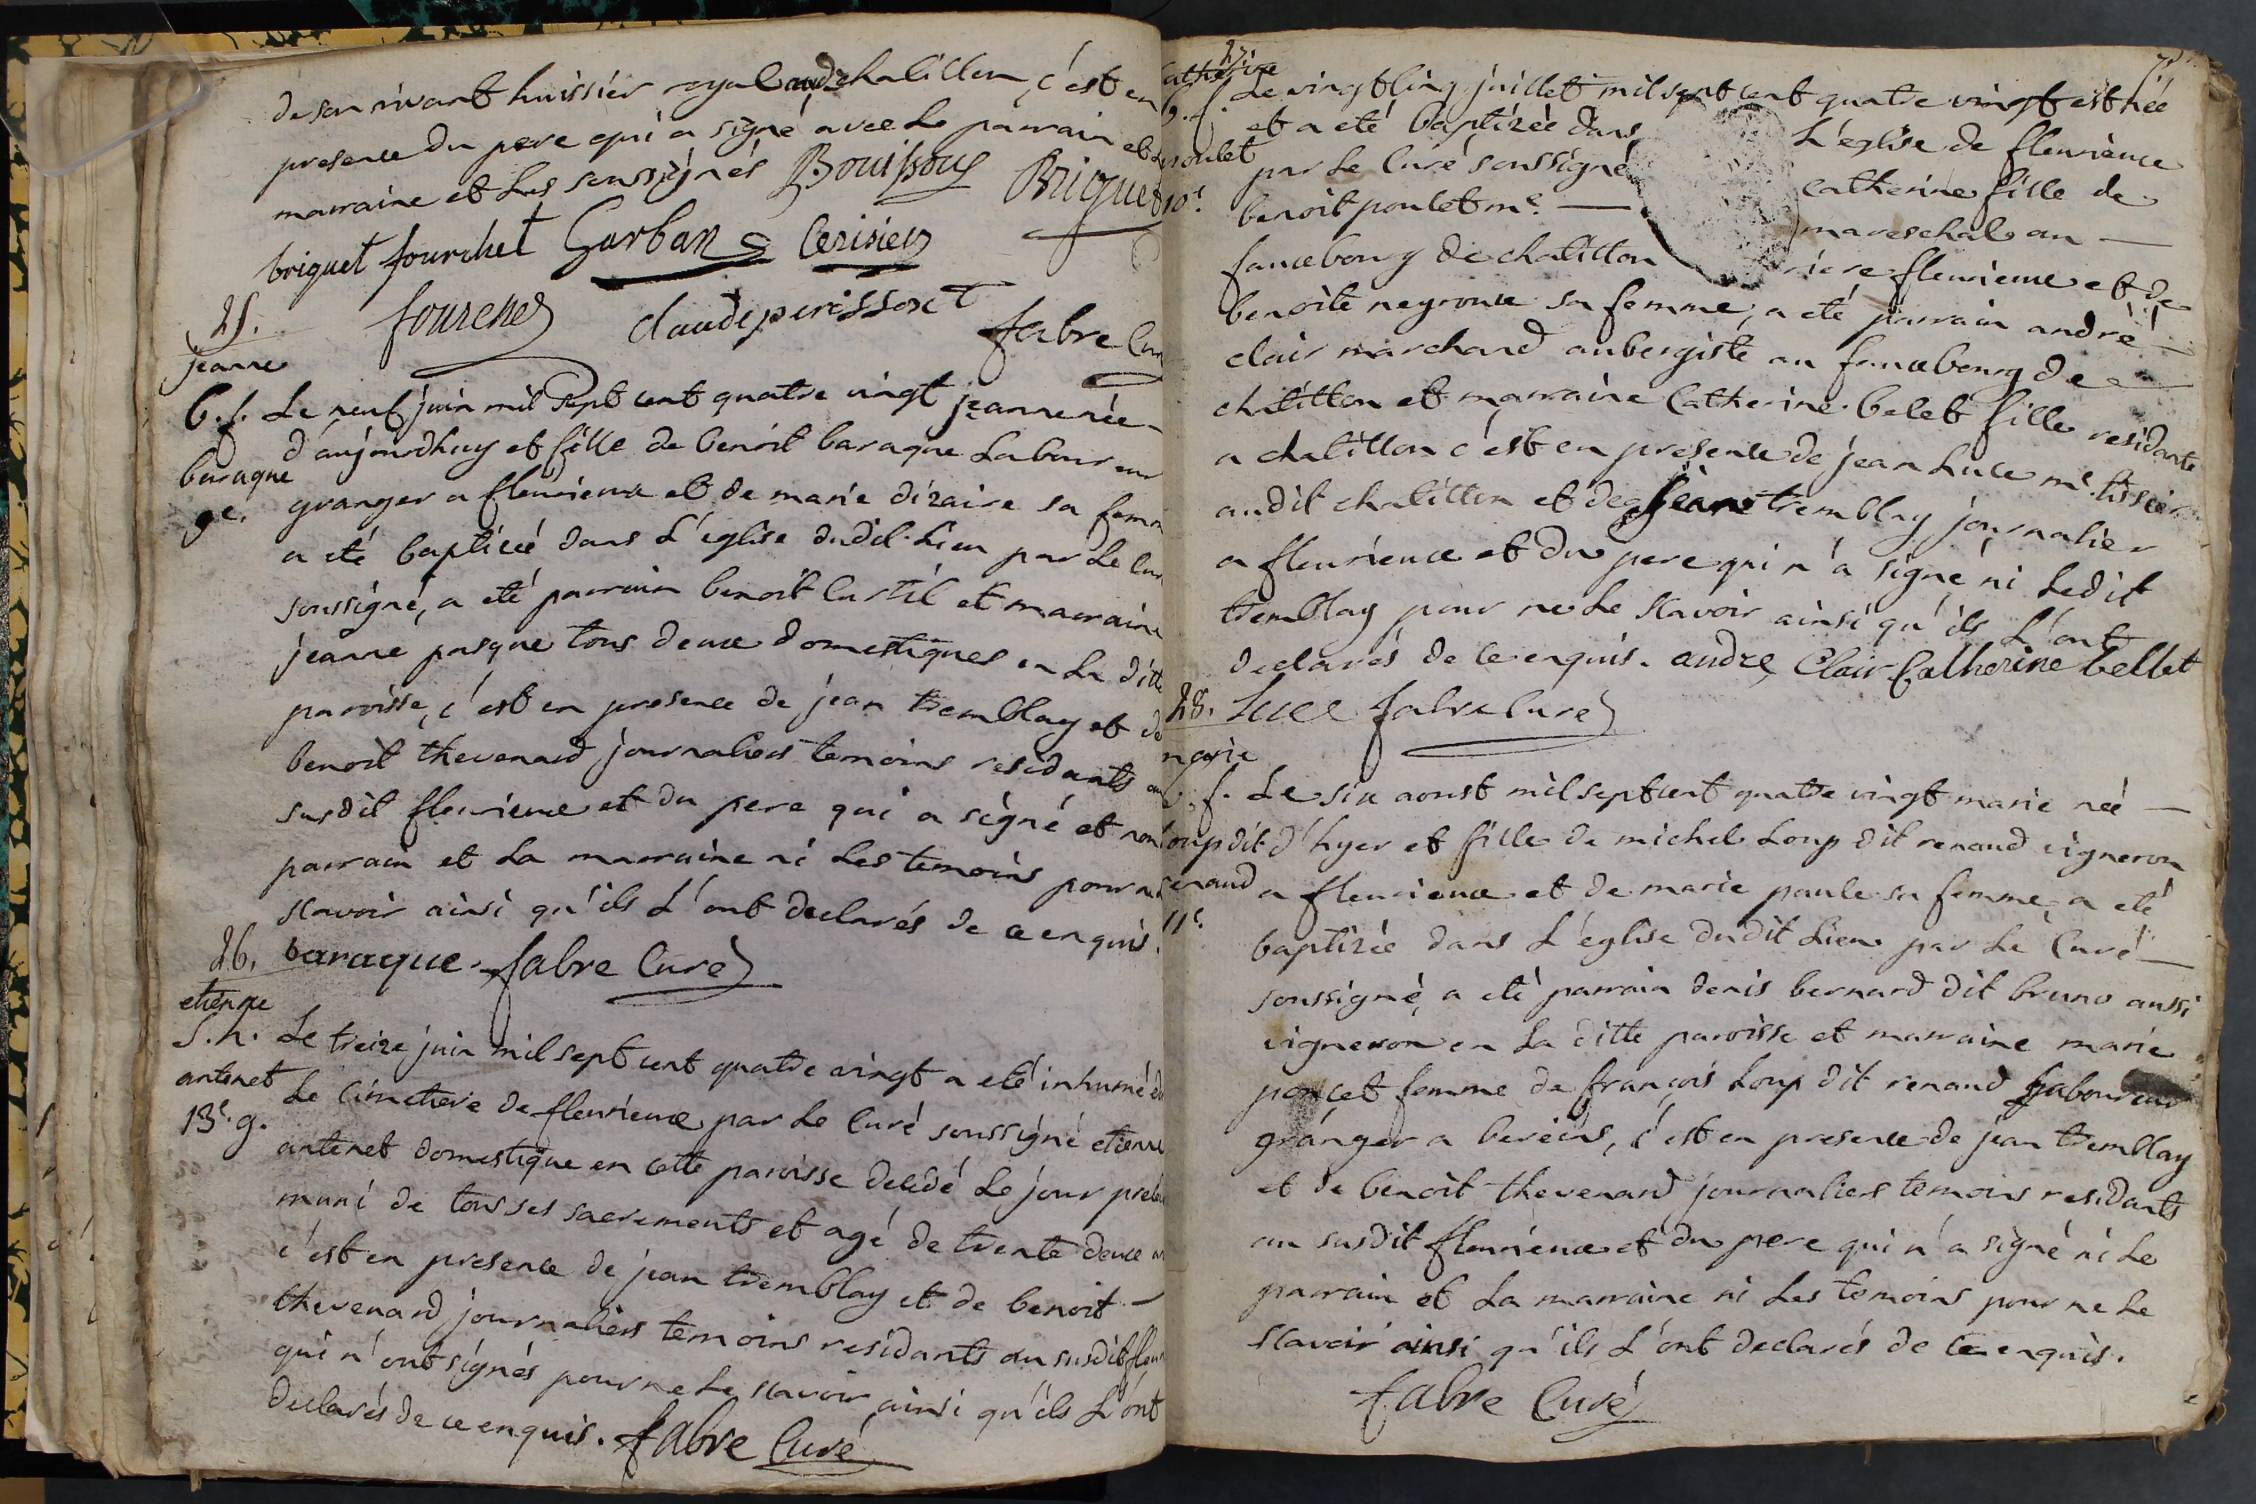 de son vivant huissier royal audit chatillon, c'est en
presence du pere qui a signé avec le parrain et la
marraine et les soussignés Bouissoug Briquet
briquet fourchet Garban Cerisier
fourchet claude perissont fabre Curé
25.
jeanne
b. f. Le neuf juin mil sept cent quatre vingt jeanne née
d'aujourdhuy et fille de benoit baraque laboureur
baraque
granger a fleurieux et de marie dizaire sa femme
9e.
a eté baptisée dans l'eglise dudit lieu par le curé
soussigné, a eté parrain benoit curtil et marraine
jeanne pasque tous deux domestiques en la ditte
paroisse, c'est en presence de jean tremblay et de
benoit thevenard journaliers temoins residants au
susdit fleurieux et du pere qui a signé et non le
parrain et la marraine ni les temoins pour ne le
scavoir ainsi qu'ils l'ont declarés de ce enquis.
baraque. fabre Curé
26.
etienne
S. h. Le treize juin mil sept cent quatre vingt a eté inhumé dans
antenet
Le cimetiere de fleurieux par le curé soussigné etienne
13e. g.
antenet domestique en cette paroisse decedé le jour precedent
muni de tous ses sacrements et agé de trente deux ans
c'est en presence de jean tremblay et de benoit
thevenard journaliers temoins residants au susdit fleurieux
qui n'ont signés pour ne le scavoir ainsi qu'ils l'ont
declarés de ce enquis. fabre Curé
27
catherine
b. f. Le vingt cinq juillet mil sept cent quatre vingt est née
et a eté baptizée dans L'eglise de fleurieux
poulet
par le curé soussigné catherine fille de
10e.
benoit poulet me. mareschal au
fauxbourg de chatillon riere fleurieux et de
benoite negroux sa femme, a eté parrain andré
clair marchand aubergiste au fauxbourg de
chatillon et marraine Catherine belet fille residante
a chatillon c'est en presence de jean luce me. tissier
audit chatillon et de jean tremblay journalier
a fleurieux et du pere qui n'a signé ni ledit
tremblay pour ne le scavoir ainsi qu'ils l'ont
declarés de ce enquis. andre Clair Catherine bellet
Luce fabre Curé
28.
marie
b. f. Le six aoust mil sept cent quatre vingt marie née
Loup dit d'hyer et fille de michel Loup dit renaud vigneron
renaud a fleurieux et de marie paule sa femme, a eté
11e.
baptizée dans L'eglise dudit lieu par le Curé
soussigné, a eté parrain denis bernard dit bruno aussi
vigneron en la ditte paroisse et marraine marie
poncet femme de françois Loup dit renaud laboureur
granger a bereins, c'est en presence de jean tremblay
et de benoit thevenard journaliers temoins residants
au susdit fleurieux et du pere qui n'a signé ni le
parrain et la marraine ni les temoins pour ne le
scavoir ainsi qu'ils l'ont declarés de ce enquis.
fabre Curé